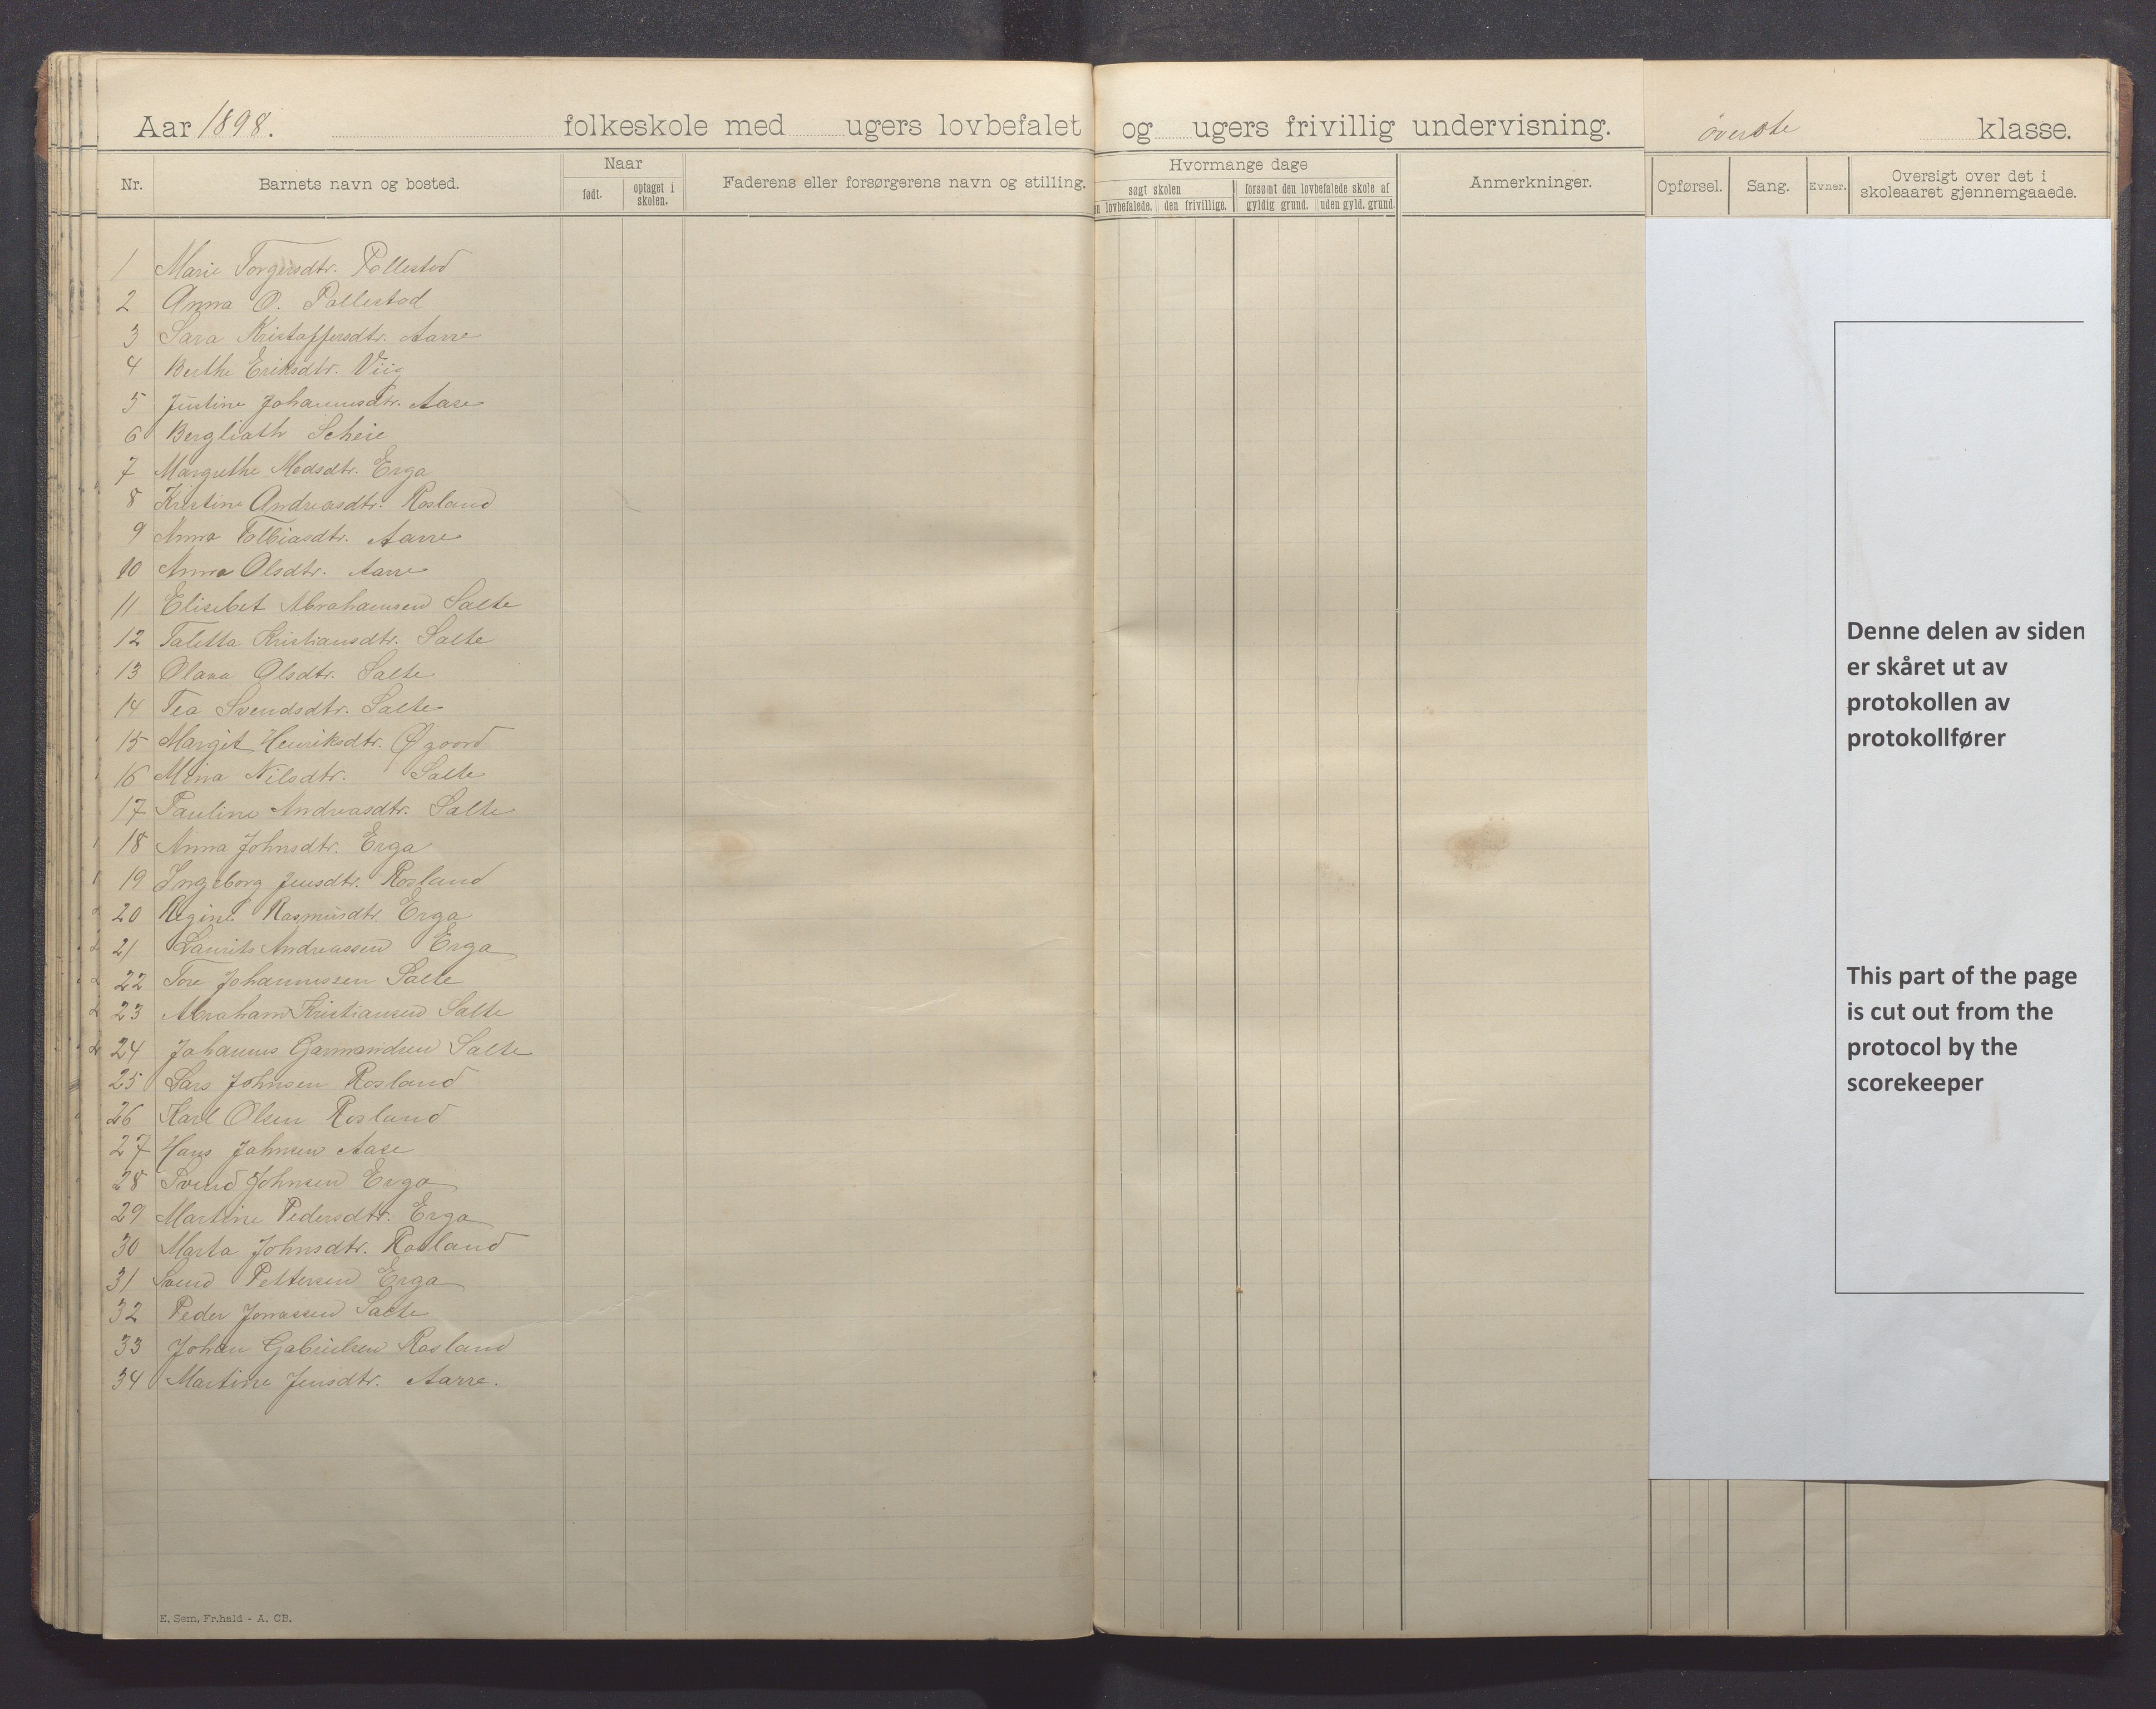 Aar 1898. folkeskole med ugers lovbefalet og ugers frivillig undervisning. överste klasse.
Nr. Barnets navn og bosted. Naar født. optaget i skolen. Faderens eller forsørgerens navn og stilling. Hvormange dage søgt skolen en lovbefalede. den frivillige. forsømt den lovbefalede skole af gyldig grund. uden gyld. grund. Anmerkninger. Opførsel. Sang. Evner. Oversigt over det i skoleaaret gjennemgaaede.
1 Marie Torgersdtr. Pollestad
2 Anna O. Pollestad
3 Sara Kristoffersdtr. Aarre
4 Berthe Eriksdtr. Viig
5 Justine Johannesdtr. Aase
6 Bergliath Scheie
7 Margrethe Madsdtr. Erga
8 Kristine Andreasdtr. Rosland
9 Anna Tobiasdtr. Aarre
10 Anna Olsdtr. Aarre
11 Elisebet Abrahamsen Salte
12 Taletta Kristiansdtr. Salte
13 Olava Olsdtr. Salte
14 Tea Svendsdtr. Salte
15 Margit Henriksdtr. Øgaard
16 Mina Nilsdtr. Salte
17 Pauline Andreasdtr. Salte
18 Anna Johnsdtr. Erga
19 Ingeborg Jensdtr. Rosland
20 Regine Rasmusdtr. Erga
21 Laurits Andreassen Erga
22 Tore Johannessen Salte
23 Abraham Kristiansen Salte
24 Johannes Garmandsen Salte
25 Lars Johnsen Rosland
26 Karl Olsen Rosland
27 Hans Johnsen Aase
28 Svend Johnsen Erga
29 Martine Pedersdtr. Erga
30 Marta Johnsdtr. Rosland
31 Svend Pettersen Erga
32 Peder Jonassen Salte
33 Johan Gabrielsen Rosland
34 Martine Jensdtr. Aarre.
E. Sem, Fr.hald - A. CB.
Denne delen av siden
er skåret ut av
protokollen av
protokollfører
This part of the page
is cut out from the
protocol by the
scorekeeper